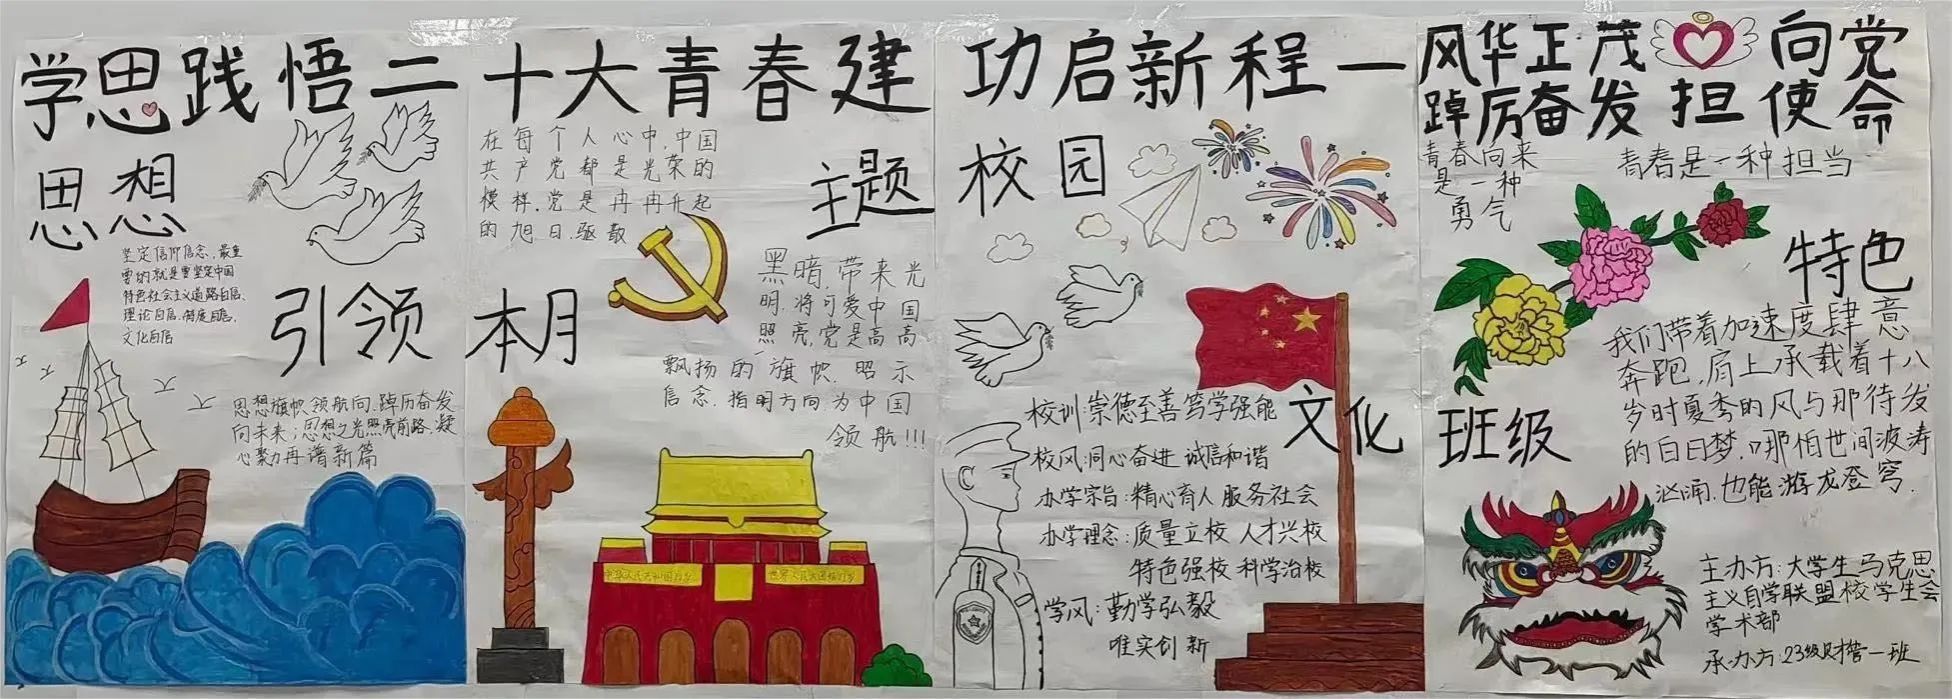 学思践悟二十大青春建功启新程一
风华正茂 向党
踔厉奋发担使命
思想
引领
坚定信仰信念,最重
要的就是要坚定中国
特色社会主义道路自信、
理论自信、制度自信、
文化自信
思想旗帜领航向,踔厉奋发
向未来;思想之光照亮前路,凝
心聚力再谱新篇
在每个人心中,中国
共产党都是光荣的
模样,党是冉冉升起
的旭日,驱散
主题
本月
黑暗,带来光
明,将可爱中国
照亮,党是高高
飘扬的旗帜,昭示
信念,指明方向为中国
领航!!!
中华人民共和国万岁
世界人民大团结万岁
校园
文化
校训:崇德至善笃学强能
校风:同心奋进 诚信和谐
办学宗旨:精心育人 服务社会
办学理念:质量立校 人才兴校
特色强校 科学治校
学风:勤学弘毅
唯实创新
青春向来
是一种
勇气
青春是一种担当
特色
班级
我们带着加速度肆意
奔跑,肩上承载着十八
岁时夏季的风与那待发
的白日梦,哪怕世间波涛
汹涌,也能游龙登穹.
主办方:大学生马克思
主义自学联盟校学生会
学术部
承办方:23级财管一班